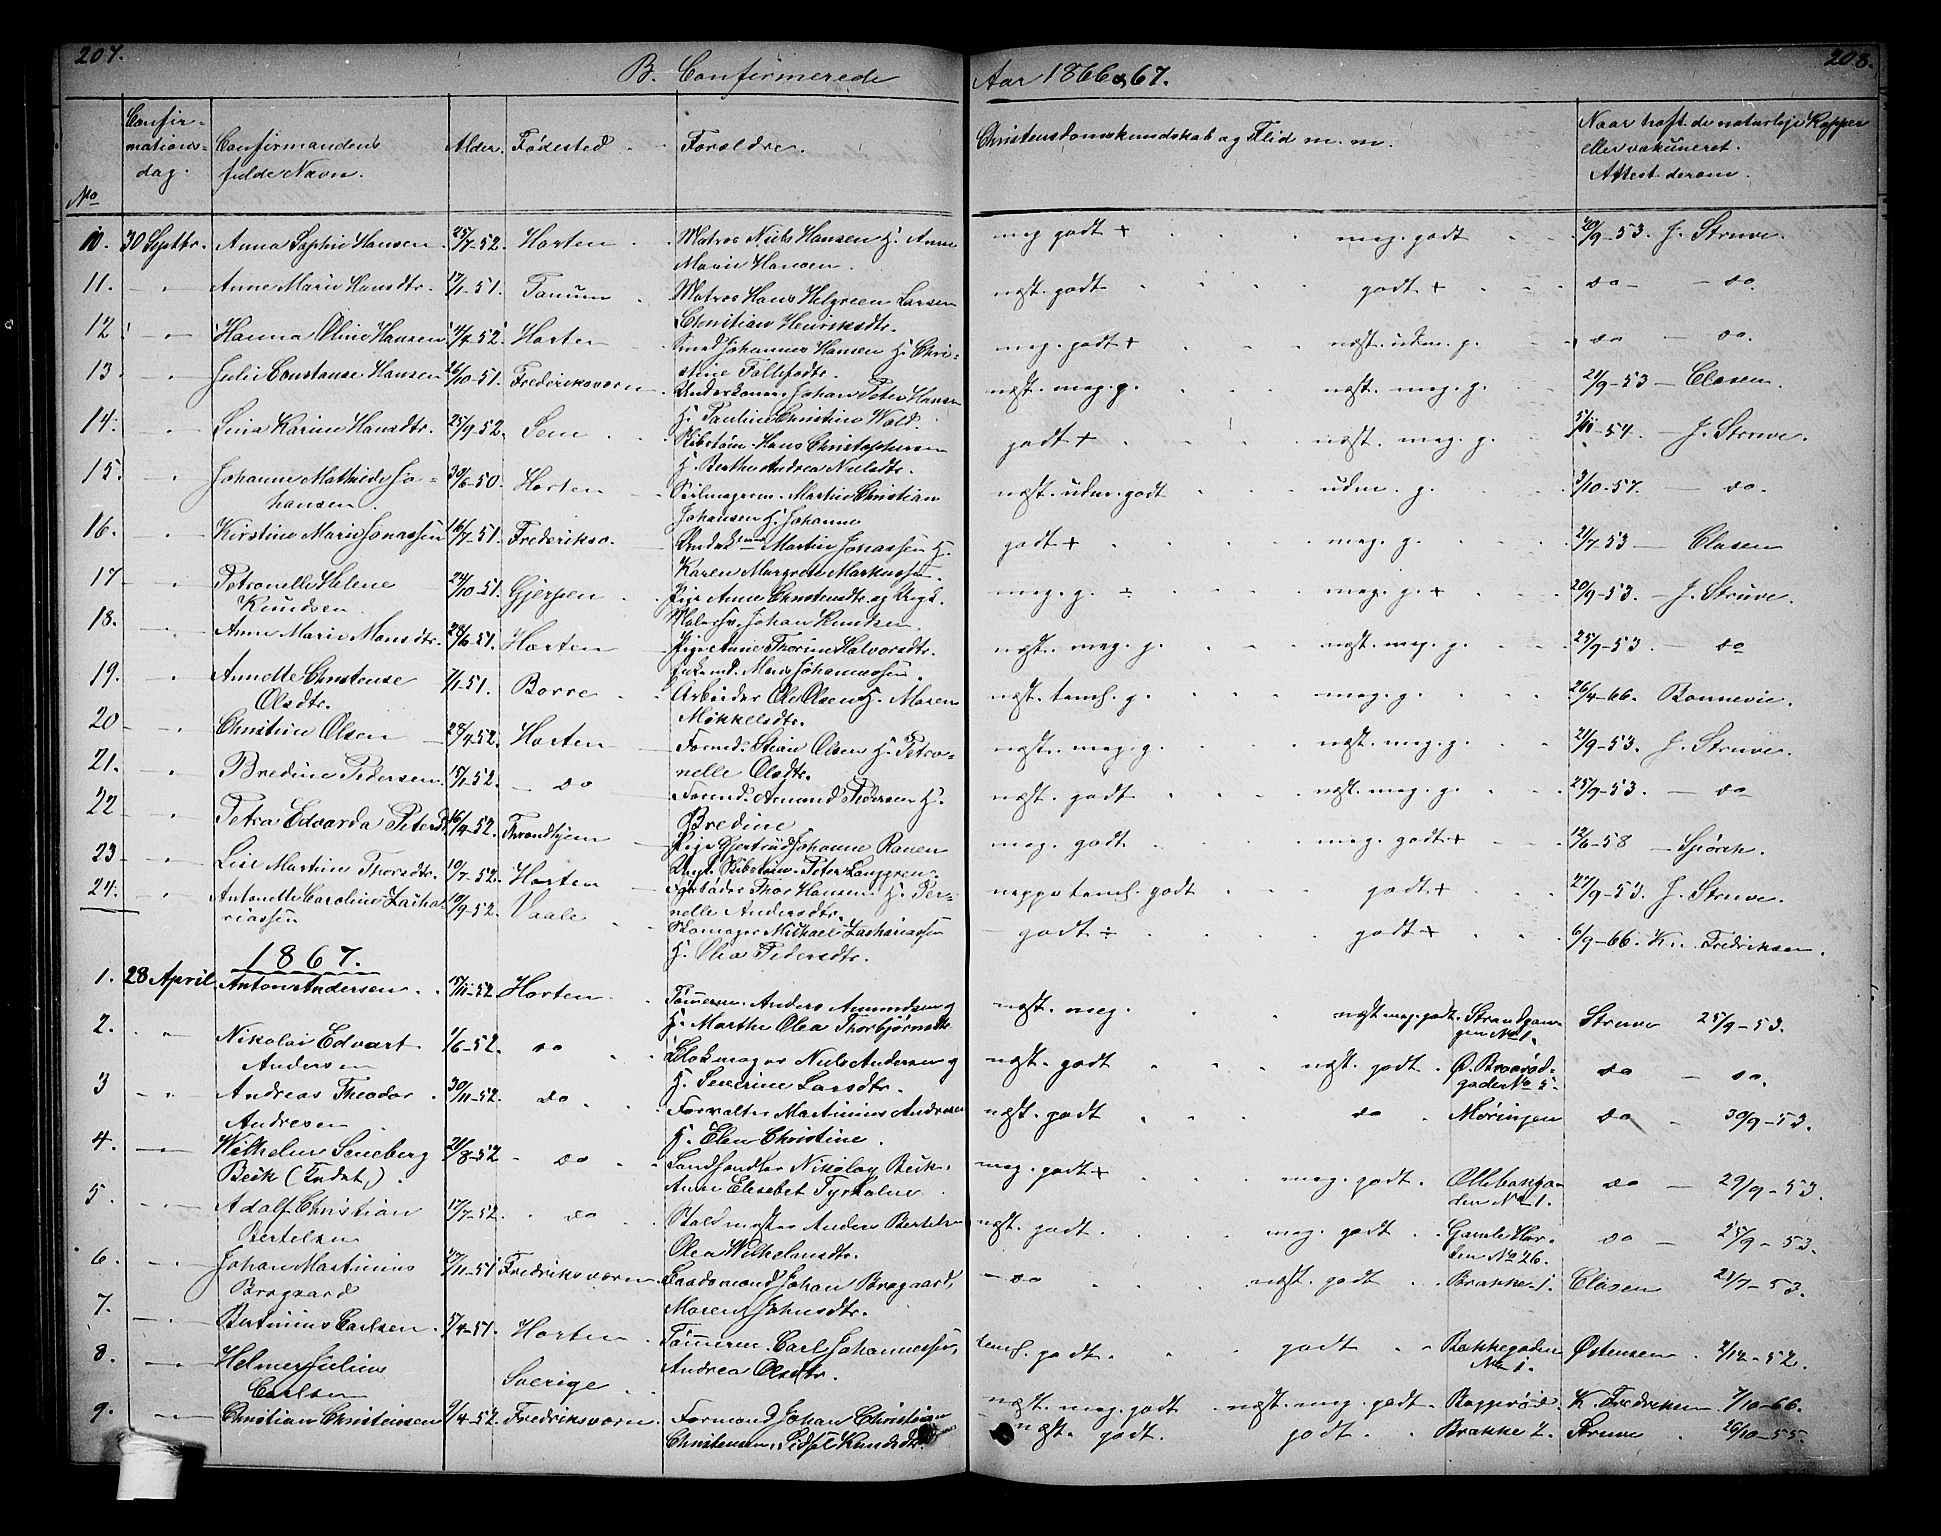 207.
B. Confirmerede
Aar 1866 & 67.
208.
No
Confir-
mations-
dag.
Confirmandens
fulde Navn.
Alder.
Fødested
Forældre.
Christendomskundskab og Flid m. m.
Naar havt de naturlige Kopper
eller vakuneret.
Attest derom.
10. 30 Septbr. Anna Sophie Hansen 25/7-52. Horten Matros Niels Hansen H. Anne meg godt + meg. godt 20/9-53. J. Struve.
Marie Hansen.
11. Anne Marie Hansdtr. 17/1-51. Tanum Matros Hans Helgreen Larsen næst. godt godt + do do.
Christian Henriksdtr.
12 Hanna Oline Hansen 11/4-52. Horten Smed Johannes Hansen H. Chri- meg. godt + næst. udm. g. do do.
stine Tollefsdtr.
13 Julie Constanse Hansen 26/10-51. Frederiksværn Underkanon Johan Peter Hansen næst. meg. g. næst. meg. g. 21/9-53 - Clasen.
H. Pauline Christine Wold.
14. Sina Karine Hansdtr. 25/9-52. Sem Skibstøm. Hans Christophersen godt + næst. meg. g. 5/10-54. - J. Struve.
H. Berthe Andrea Nielsdtr.
15. Johanne Mathilde Jo- 30/6-50. Horten Seilmagerm. Martin Christian næst. udm. godt udm. g. 3/10-57. - do.
hansen. Johansen H. Johanne
16. Kirstine Marie Jonassen 16/7-51. Frederiksv. Martin Jonassen H. godt + meg. g. 21/7 53 - Clasen
Karen Margrete Markussen.
17 Petronelle Helene 24/10-51. Gjerpen Pige Anne Christensdtr. og Ungk. meg. g. ÷ meg. g. + 20/9-53. - J. Struve.
Knudsen Malersv. Johan Knudsen.
18. Anne Marie Monsdtr. 28/6-51. Horten Pige Anne Thorine Halvorsdtr. næst. meg. g. næst. meg. g. 25/9-53. - do
Mons Johannessen.
19. Annette Christense 7/1-51. Borre Arbeider Ole Olsen H. Maren næst. teml. g. meg. g. 26/4-66. Bonnevie.
Olsdtr. Mikkelsdtr.
20 Christine Olsen 28/4-52. Horten Formd. Stian Olsen H. Petro- næst. meg. g. næst. meg. g. 21/9-53. J. Struve.
nelle Olsdtr.
21. Bredine Pedersen 15/1-52. do Formd. Amund Pedersen H. næst. godt næst. meg. g. 25/9-53. - do
Bredine
22 Petra Edvarda Petersd. 16/4-52. Throndhjem Pige Gjertrud Johanne Ranen meg. godt meg. godt + 12/6-58 - Spørck.
Ungk. Skibstøm. Peter Langgren.
23 Lise Martine Thorsdtr. 10/7-52. Horten Arbeider Thor Hansen H. Per- neppe teml. godt godt + 27/9-53. J. Struve.
nelle Andersdtr.
24. Antonette Caroline Zacha- 10/9-52. Vaale Skomager Mikkael Zachariassen godt ÷ godt + 6/9-66. K. Fredriksen.
riassen H. Olea Pedersdtr.
1867.
1. 28 April. Anton Andersen 15/11-52 Horten Tømmerm. Anders Amundsen og næst. meg. næst meg. godt. Strandgan- Struve 25/9-53.
H. Marthe Olea Thorbjørnsdtr. gen No 1.
2. Nikolai Edvart 1/6-52. do Blokmager Niels Andersen og næst. godt næst. godt Ø. Braarød- do do.
Andersen H. Severine Larsdtr. gaden No 5.
3 Andreas Theodor 30/11-52. do Forvalter Martinius Andresen næst. godt do Møringen do 30/9-53.
Andresen H. Elen Christine.
4. Wilhelm Seneberg 21/8-52 do Landhandler Nikolay Beck. meg. godt + meg. godt. Ollebakga- do 29/9-53.
Beck (Indst.) Anne Elisebet Tyrholm den No 1.
5 Adolf Christian 17/7-52. do Staldmester Anders Bertels. næst. godt. meg. godt Gamle Hor- do 25/9-53.
Bertelsen Olea Wilhelmsdtr. ten No 26.
6. Johan Martinius 17/11-51 Fredriksværn. Baadsmand Johan Bragaard, do næst. godt Brakke 1. Clasen 21/7-53.
Bragaard Maren Johnsdtr.
7. Bertinius Carlsen. 5/4-51. Horten Tømmerm. Carl Johannessen, teml. godt. godt Bakkegaden Østensen 2/12-52.
Andrea Olsdtr. No 1.
8. Helmer Julius Sverige næst. meg. godt næst. meg. godt Bopprød K. Fredriksen 7/10-66.
Carlsen
9. Christian Christensen 9/4-52. Fredriksværn. Formand Johan Christian næst. godt. godt Brakke 2. Struve 26/10-55.
Christensen, Sidsel Knudsdtr.